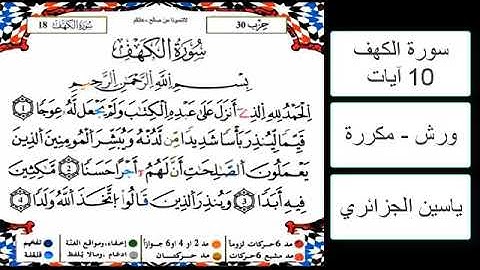 حزب 30
لاتنسونا من صالح دعائكم
سورة الكهف 18
سُورَةُ الْكَهْفِ
بِسْمِ اللَّهِ الرَّحْمَٰنِ الرَّحِيمِ
اِلْحَمْدُ لِلهِ الذِے أَنزَلَ عَلَىٰ عَبْدِهِ اِلْكِتَٰبَ وَلَمْ يَجْعَل لَّهُۥ عِوَجاً ١
قَيِّماً لِّيُنذِرَ بَأْساً شَدِيداً مِّن لَّدُنْهُ وَيُبَشِّرَ اَلْمُومِنِينَ اَلذِينَ
يَعْمَلُونَ اَلصَّٰلِحَٰتِ أَنَّ لَهُمُۥٓ أَجْراً حَسَناً ٢ مَّٰكِثِينَ
فِيهِ أَبَداً ٣ وَيُنذِرَ اَلذِينَ قَالُوا اُ۪تَّخَذَ اَللَّهُ وَلَداً ٤
مد 6 حركات لزوما مد 2 أو 4 أو 6 جوازا إخفاء، ومواقع الغنة تفخيم
مد مشبع 6 حركات مد حركتان ادغام، ومالا يلفظ قلقلة
سورة الكهف
10 آيات
ورش - مكررة
ياسين الجزائري